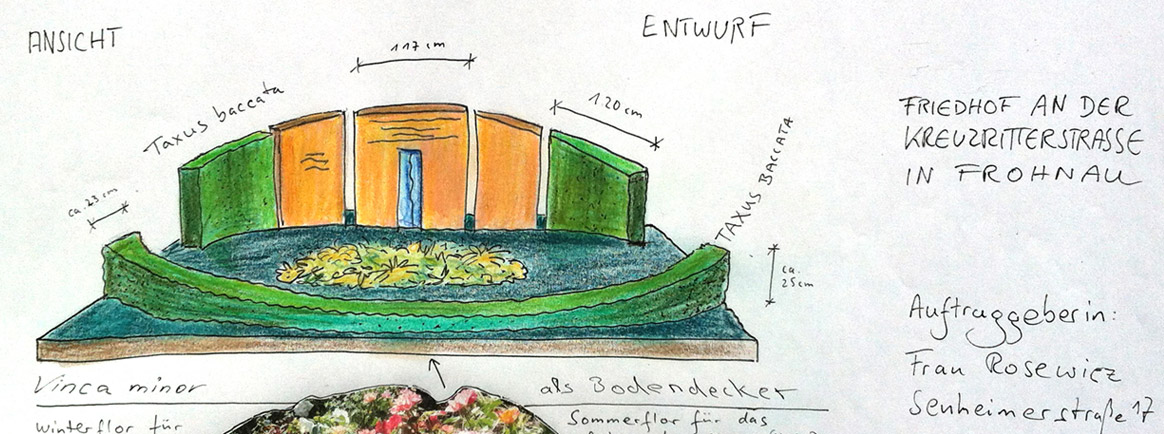 ANSICHT
ENTWURF
117 cm
Taxus baccata
1.20 cm
ca. 23 cm
TAXUS BACCATA
ca.
25cm
FRIEDHOF AN DER
KREUZRITTERSTRASSE
IN FROHNAU
Auftraggeberin:
Frau Rosewicz
Senheimerstraße 17
Vinca minor als Bodendecker
winterflor für
Sommerflor für das